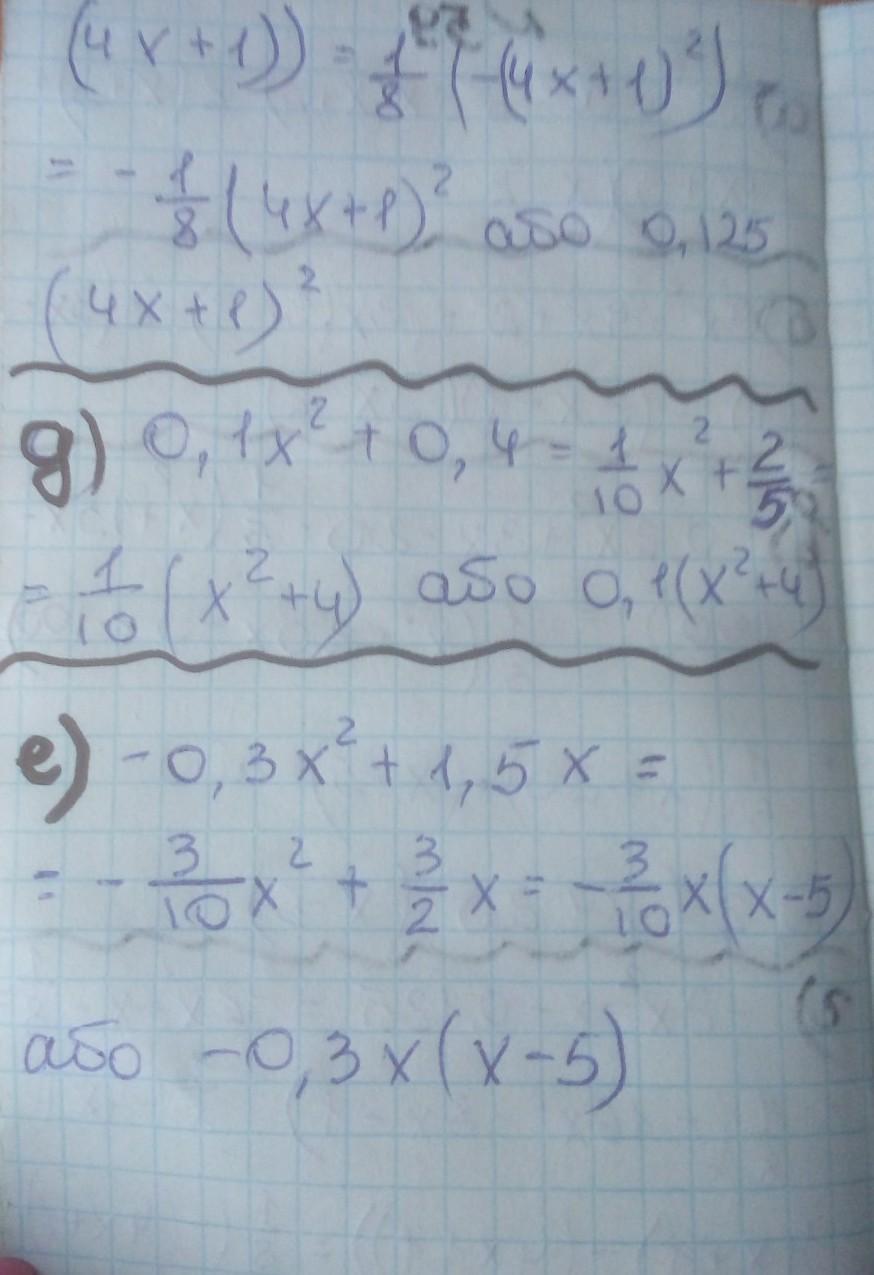 (4x+1)) = 1/8 (-(4x+1)²)
= - 1/8 (4x+1)² або 0,125
(4x+1)²
д) 0,1x² + 0,4 = 1/10 x² + 2/5 =
= 1/10 (x²+4) або 0,1(x²+4)
е) -0,3x² + 1,5x =
= - 3/10 x² + 3/2 x = - 3/10 x(x-5)
або -0,3x(x-5)